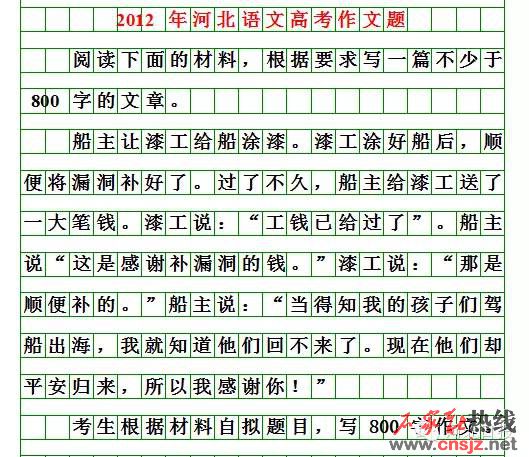 2012 年河北语文高考作文题
阅读下面的材料，根据要求写一篇不少于
800 字的文章。
船主让漆工给船涂漆。漆工涂好船后，顺
便将漏洞补好了。过了不久，船主给漆工送了
一大笔钱。漆工说：“工钱已给过了”。船主
说“这是感谢补漏洞的钱。”漆工说：“那是
顺便补的。”船主说：“当得知我的孩子们驾
船出海，我就知道他们回不来了。现在他们却
平安归来，所以我感谢你！”
考生根据材料自拟题目，写 800 字作文。
石家庄热线
www.cnsjz.net